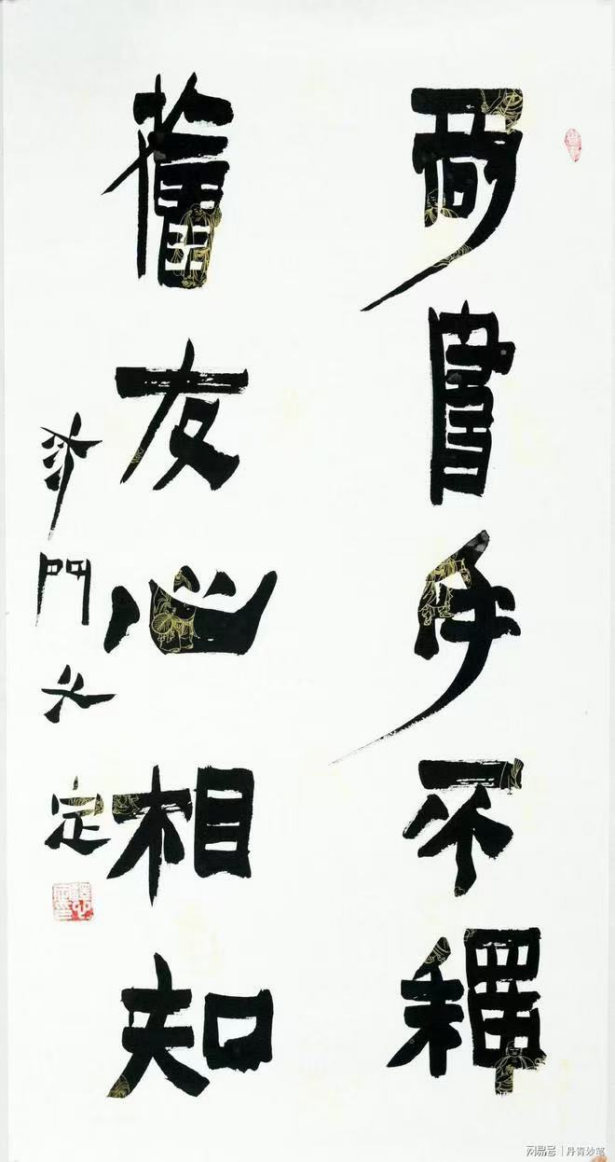 書手不釋
舊友心相知
門 定
网易号 | 丹青妙笔